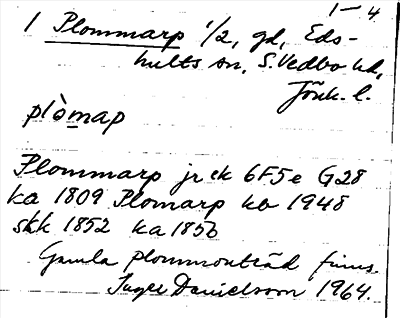 1-4
1 Plommarp 1/2, gd, Eds-
hults sn, S. Vedbo hd,
Jönk. l.
plòmap
Plommarp jr ek 6F5e G28
ka 1809 Plomarp kb 1948
skk 1852 ka 1850
Gamla plommonträd finns.
Inger Danielsson 1964.